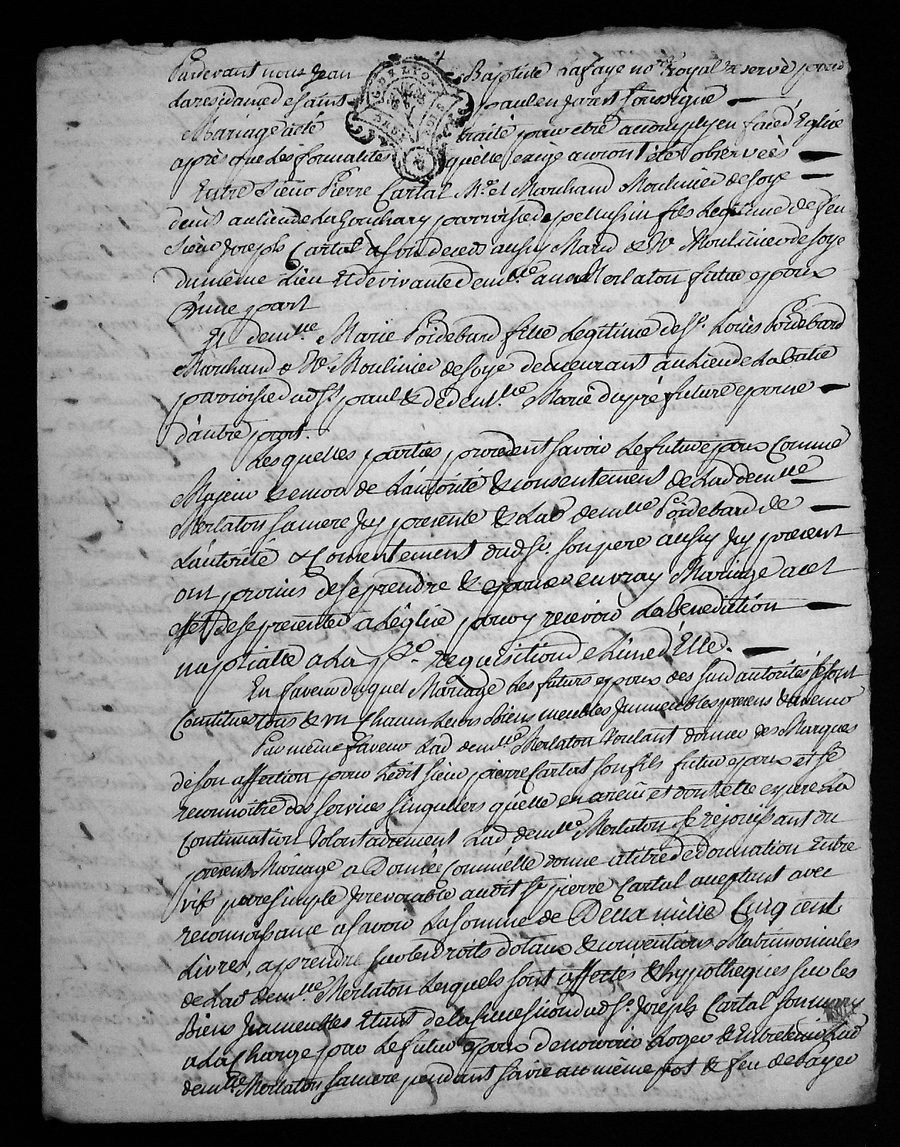 Pardevant nous Jean Baptiste Lafaye no.re Royal reservé pour
la residance de saint paul en Jarest soussigné
Mariage a été traité pour etre accomply en face d'Eglise
après que les formalités quelle exige auront été observées
Entre Sieur Pierre Cartal M.e et Marchand Moulinier de soye
deurt au lieu de la Gouchary parroisse de pellussin fils Legitime de feu
sieur Joseph Cartal a son deced aussy March.d & M.e Moulinier de soye
du même lieu et de vivante dem.lle anna Merlaton futur epoux
d'une part
Et dem.lle Marie Poidebard fille Legitime de S.r Loüis Poidebard
Marchand & M.e Moulinier de soye demeurant au lieu de La batie
parroisse dud S.t paul & de dem.lle Marie dupré future epouse
d'autre part.
Lesquelles parties procedent savoir Le futur epoux Comme
Majeur & emoy de L'autorité & consentement de Lad demlle
Merlaton sa mere Jcy presente & Lad demlle Poidebard de
L'autorité & Consentement dud Sr. son pere aussy Jcy present
ont promis de se prendre & epouser en vray Mariage a cet
effet de se presenter a L'église pour y recevoir La benediction
nuptialle a La p.re Requisition de L'un d'Eux.
En faveur duquel Mariage Les futurs epoux des susd autorités se sont
Constitués tous & un chacun Leurs biens meubles Jmmeubles presens & avenir
Par même faveur Lad demlle Merlaton voulant donner des Marques
de son affection pour Ledit sieur pierre Cartal son fils futur epoux et se
reconnoitre des services singuliers quelle en a receu et dont elle espere La
Continuation volontairement Lad demlle Merlaton se rejouissant du
present Mariage a Donné Comme elle donne a titre de donnation Entre
vifs pure simple Jrrevocable audit Sr pierre Cartal acceptant avec
reconnoissance a savoir La somme de Deux mille Cinq cent
Livres, a prendre sur les droits dotaux & conventions Matrimoniales
de Lad demlle Merlaton Lesquels sont affectés & hypothequés sur les
biens Jmmeubles Etant de la succession dud Sr. Joseph Cartal son mary
a La charge par Le futur epoux de nourrir Loger & Entretenir Lad
demlle Merlaton sa mere pendant sa vie au même pot & feu de payer